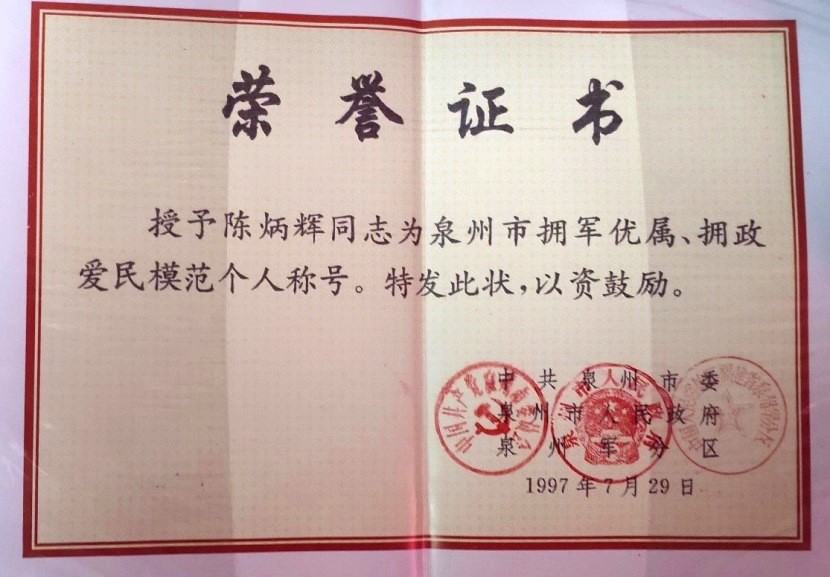 荣誉证书
授予陈炳辉同志为泉州市拥军优属、拥政
爱民模范个人称号。特发此状，以资鼓励。
中共泉州市委
泉州市人民政府
泉州军分区
1997年7月29日